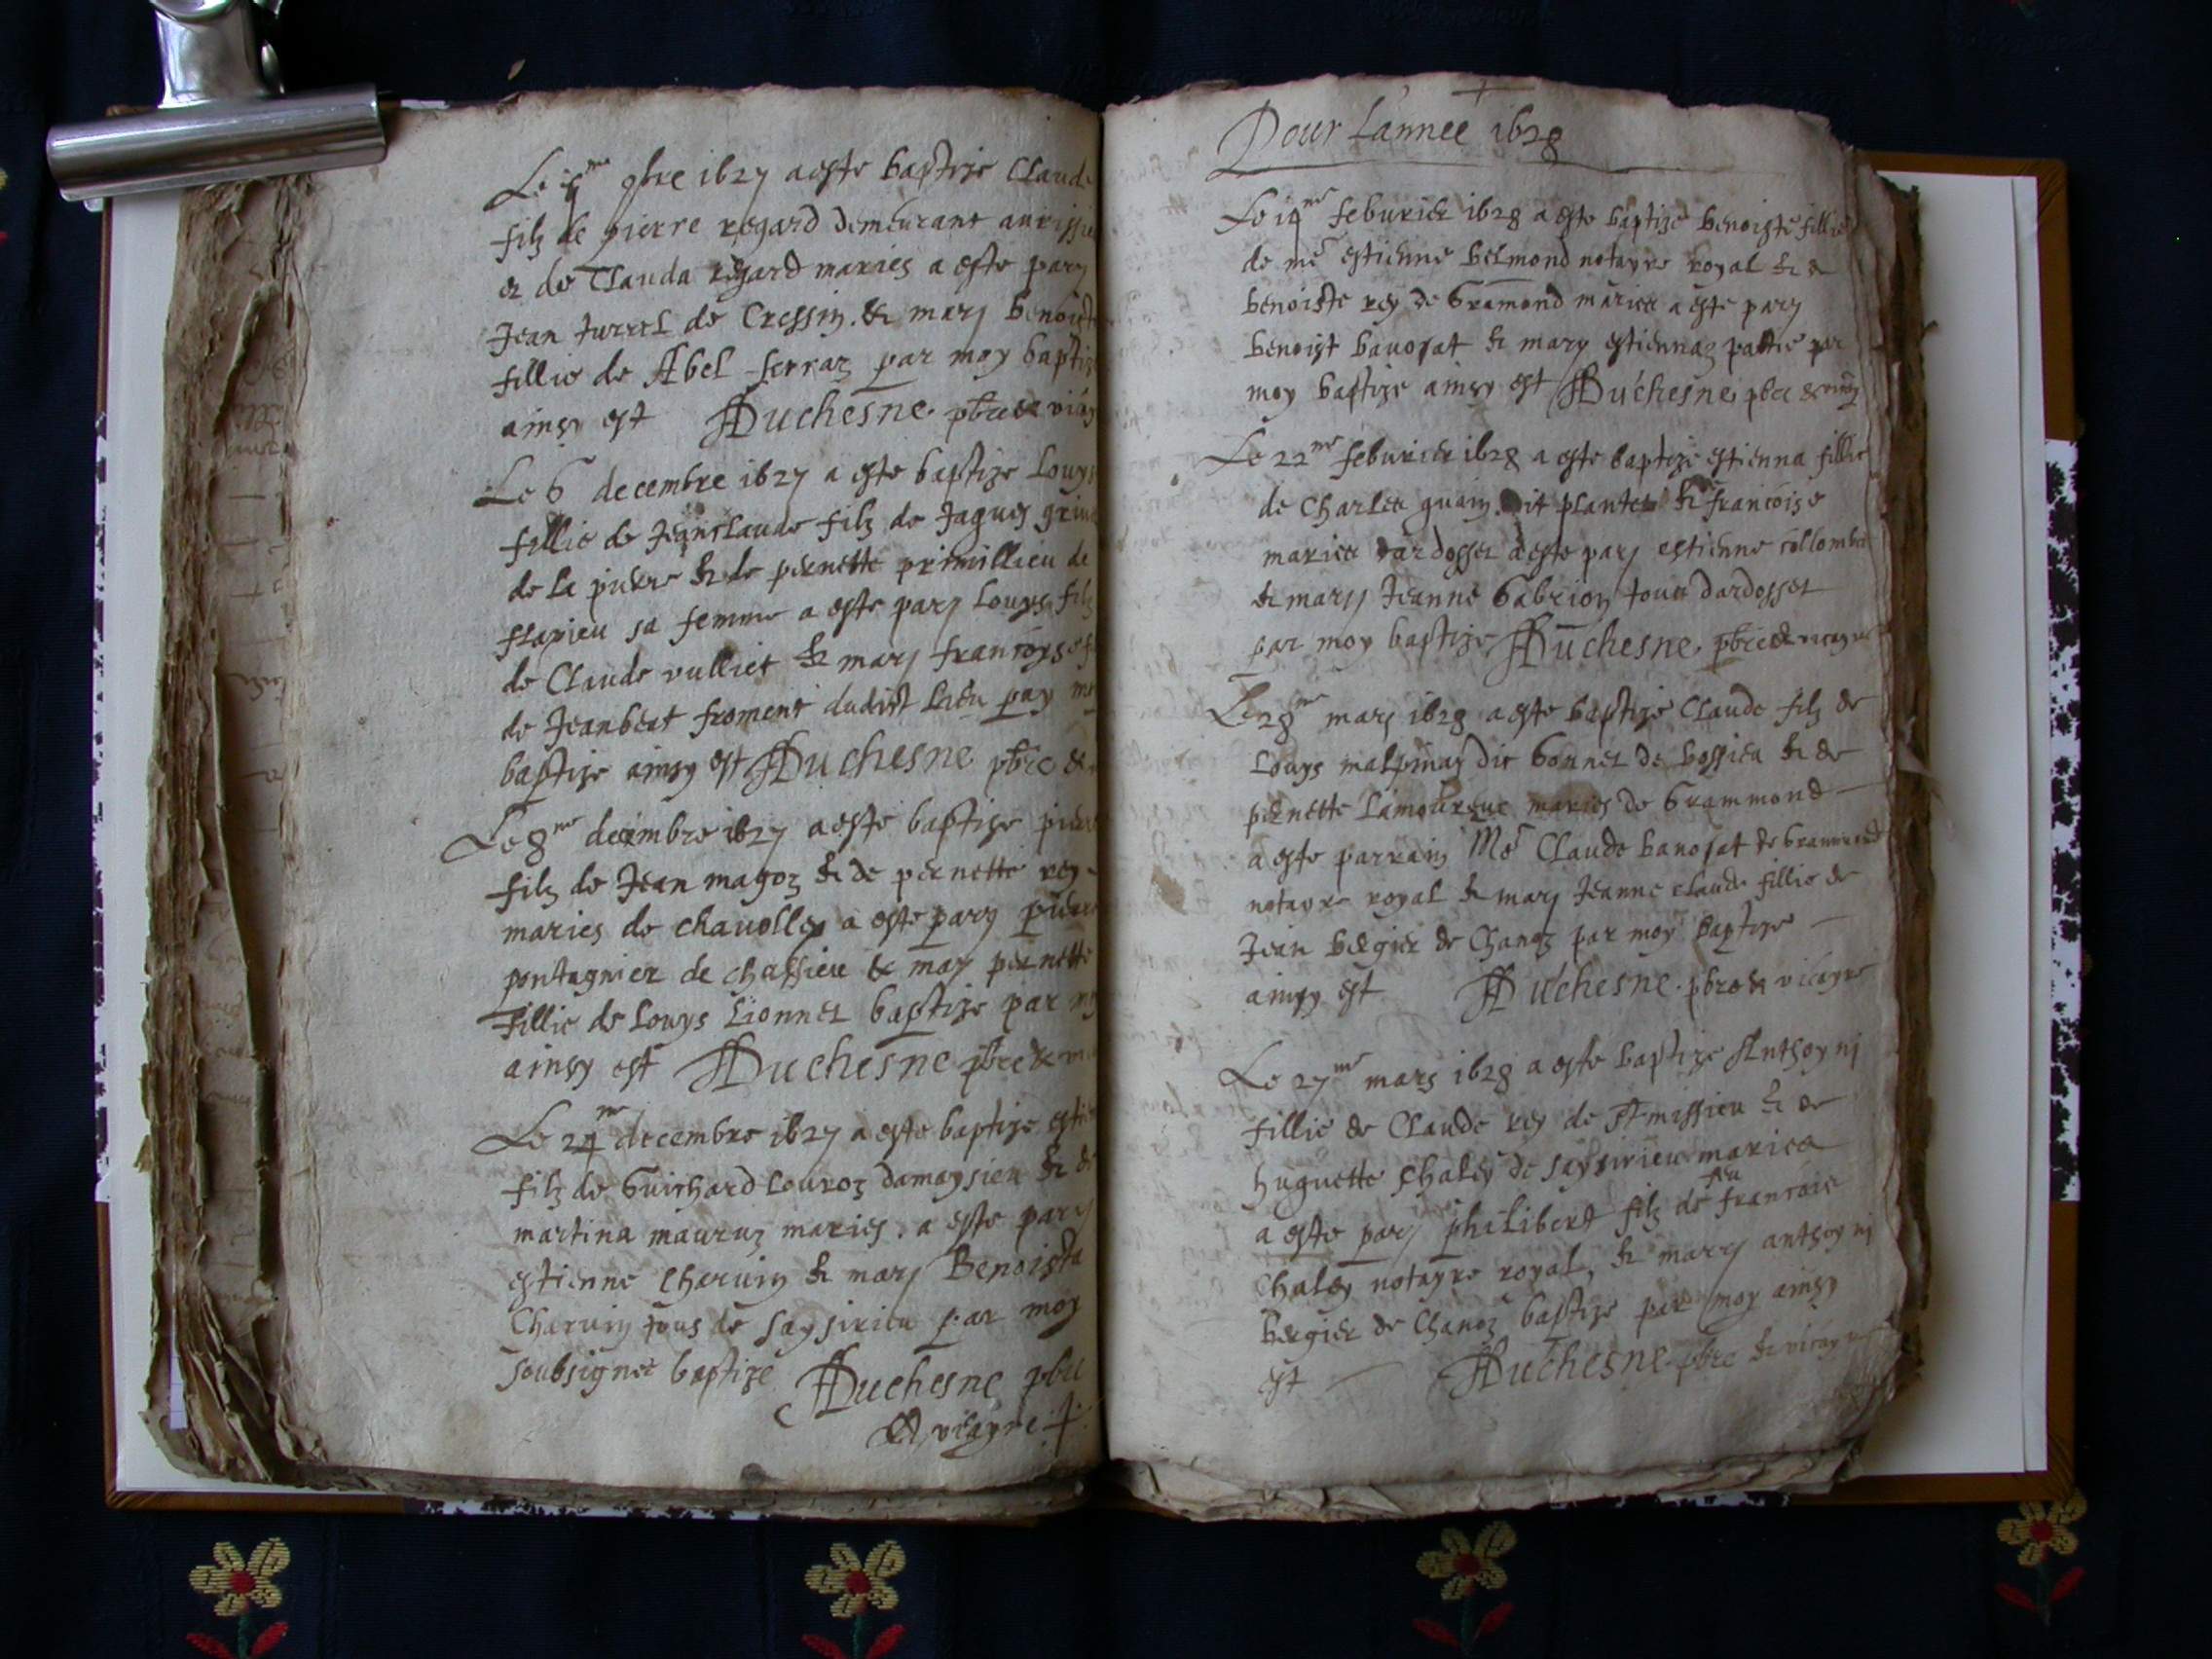 Le me 9bre 1627 a este baptize Claude
filz de pierre regard demeurant
et de Clauda regard maries a este pary
Jean turrel de Cressin & mary benoiste
fillie de Abel ferraz par moy baptize
ainsy est Duchesne pbre & vicay
Le 6 decembre 1627 a este baptize Louys
fillie de Jeanclaude filz de Jaques
de la pierre & de pernette primillieu de
flaxieu sa femme a este pary Louys filz
de Claude vulliet & mary francoyse
de Jeanbeat froment dudict lieu par moy
baptize ainsy est Duchesne pbre &
Le 8me decembre 1627 a este baptize pierre
filz de Jean magoz & de pernette rey
maries de chavolley a este pary pierre
pontagnier de chassieu & mary pernette
fillie de Louys Lionnet baptize par moy
ainsy est Duchesne pbre & vi
Le 24me decembre 1627 a este baptize esti
filz de Guichard Louroz damaysieu & de
martina mauruz maries. a este pary
estienne Charvin & mary Benoista
Charvin tous de saysirieu par moy
soubsignet baptize Duchesne pbre
& vicayre
+
Pour Lannee 1628
Le 14me feburier 1628 a este baptize benoiste fillie
de me estienne belmond notayre royal & de
benoiste rey de Gramond maries a este pary
benoist bavosat & mary estiennaz par
moy baptize ainsy est Duchesne pbre & vicay
Le 22me feburier 1628 a este baptize estienna fillie
de Charles guain dit plantet & francoise
maries dardosset a este pary estienne collomb
& mary Jeanne Gabrion tous dardosset
par moy baptize Duchesne pbre & vicayre
Le 28me mars 1628 a este baptize Claude filz de
Louys malpinay dit bonnet de bossieu & de
pernette Lamoureuc maries de Grammond
a este parrain Me Claude bavosat de Grammond
notayre royal & mary Jeanne claude fillie de
Jean bergier de Chanoz par moy baptize
ainsy est Duchesne pbre & vicayre
Le 27me mars 1628 a este baptize Anthoynj
fillie de Claude rey de st missieu & de
huguette Chaley de saysirieu maries
a este pary philibert filz de feu francois
Chaley notayre royal, & mary anthoynj
bergier de Chanoz baptize par moy ainsy
est Duchesne pbre & vicayre